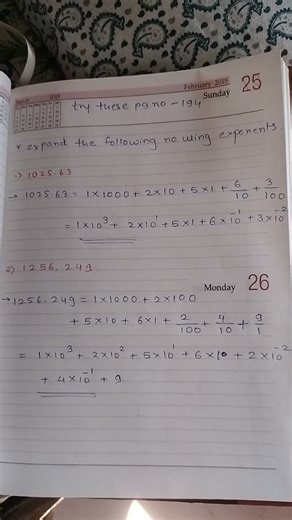 March 2018
February 2018
Sunday 25
try these pg no - 194
* expand the following no using exponents.
1) 1025.63
→ 1025.63 = 1×1000 + 2×10 + 5×1 + 6/10 + 3/100
= 1×10³ + 2×10¹ + 5×1 + 6×10⁻¹ + 3×10⁻²
2) 1256.249
Monday 26
→ 1256.249 = 1×1000 + 2×100
+ 5×10 + 6×1 + 2/100 + 4/10 + 9/1
= 1×10³ + 2×10² + 5×10¹ + 6×10 + 2×10⁻²
+ 4×10⁻¹ + 9